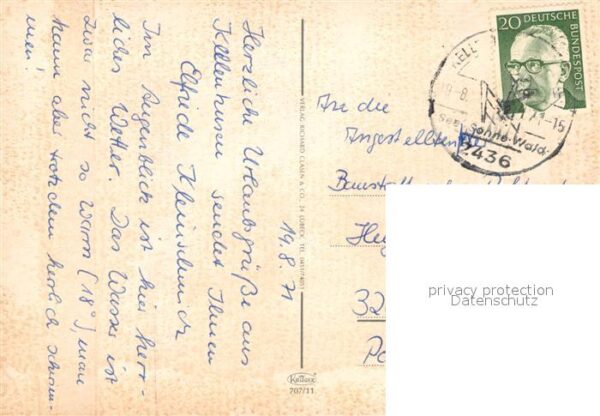 19.8.71
Herzliche Urlaubsgrüße aus
Kellenhusen sendet Ihnen
Elfriede
Im Augenblick ist hier herr-
liches Wetter. Das Wasser ist
zwar nicht so warm (18°), man
kann aber trotzdem herrlich schwim-
men!
VERLAG RICHARD CLASEN & CO., 24 LÜBECK, TEL.
Krüger
707/11
20 DEUTSCHE BUNDESPOST
KELL
19.-8.71-15
See, Sonne, Wald
2436
An die
Angestellten
32
privacy protection
Datenschutz